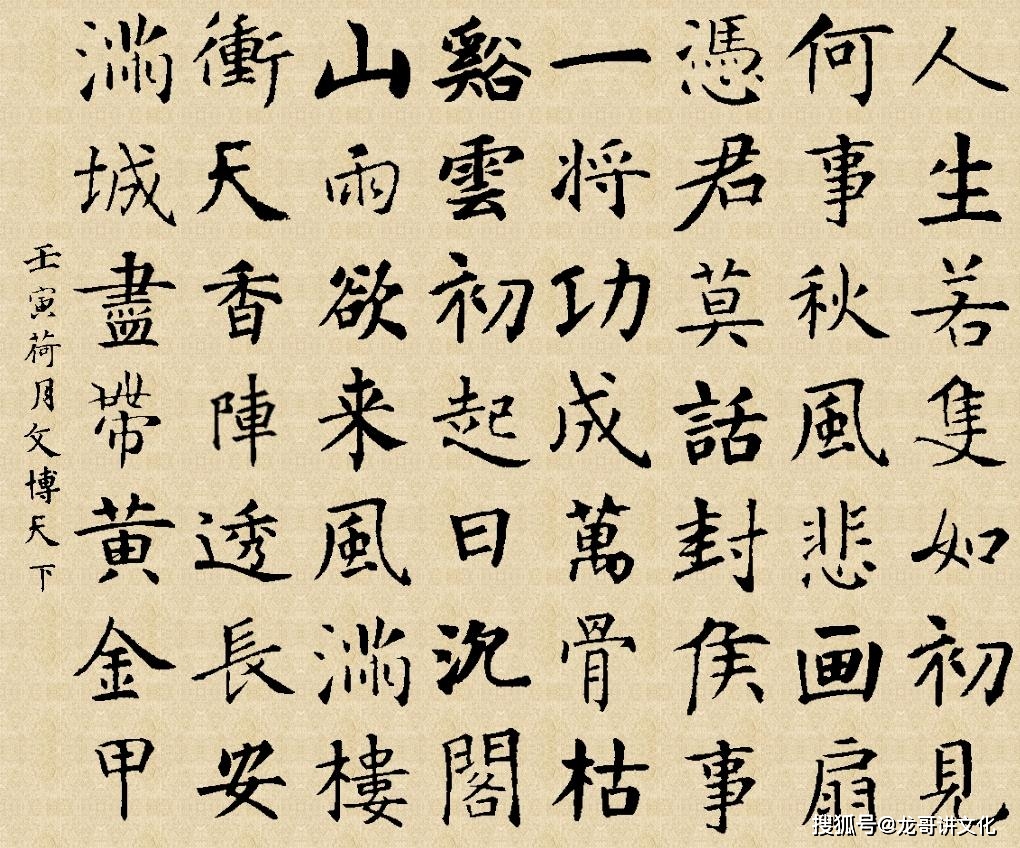 人生若隻如初見
何事秋風悲画扇
憑君莫話封侯事
一将功成萬骨枯
谿雲初起日沉閣
山雨欲来風滿樓
衝天香陣透長安
滿城盡帶黄金甲
壬寅荷月文博天下
搜狐号@龙哥讲文化